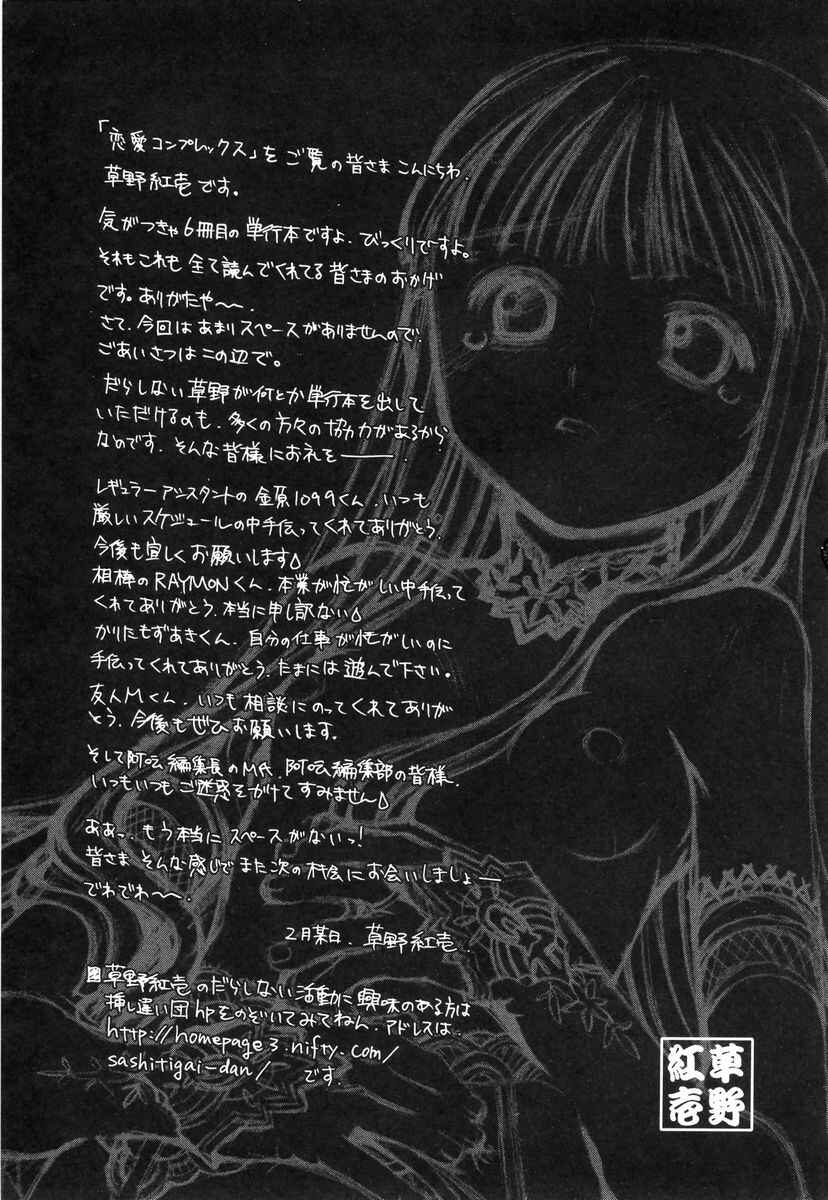 「恋愛コンプレックス」を ご覧の皆さま こんにちわ.
草野紅壱です。
気がつきゃ6冊目の単行本ですよ. びっくりですよ。
それもこれも 全て読んでくれてる 皆さまのおかげ
です。ありがたや〜〜.
さて、今回は あまり スペースがありませんので.
ごあいさつは この辺で。
だらしない 草野が何とか 単行本を出して
いただけるのも、多くの方々の協力があるから
なのです. そんな皆様にお礼を―――.
レギュラーアシスタントの 金原1099くん. いつも
厳しいスケジュールの中手伝ってくれてありがとう.
今後も宜しくお願いします△
相棒のRAYMONくん. 本業が忙がしい中手伝って
くれてありがとう. 本当に申し訳ない△
かりたもずあきくん. 自分の仕事が忙がしいのに
手伝ってくれてありがとう. たまには 遊んで下さい。
友人Mくん. いつも相談にのってくれてありが
とう. 今後もぜひお願いします。
そして阿吽編集長のM氏. 阿吽編集部の皆様.
いつもいつもご迷惑をかけてすみません△
ああっ. もう本当に スペースがないっ!
皆さま そんな感じで また次の機会にお会いしましょー
でわでわ〜〜.
2月某日. 草野紅壱.
草野紅壱 のだらしない活動に興味のある方は
挿し違い団hpをのぞいてみてねん. アドレスは.
http://homepage3.nifty.com/
sashitigai-dan/ です.
草野
紅壱